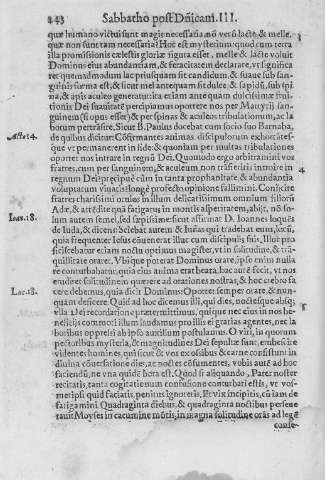 243 Sabbatho post Dñicam. III.
quæ humano victui sunt magis necessaria nō verò lacte & melle,
quæ non sunt tam necessaria? Hoc est mysterium: quod cum terra
illa promissionis cælestis gloriæ figura esset, melle & lacte voluit
Dominus eius abundantiam, & fœcunditatem declarare, vt significa
ret quemadmodum lac priusquam sit candidum, & suaue sub san-
guinis forma est, & sicut mel antequam sit dulce, & sapidū, sub spi
na, & apis aculeo generatur: ita etiam ante quam dulcissimæ frui-
tionis Dei suauitatē percipiamus oportere nos per Martyrij san-
guinem (si opus esset) & per spinas & aculeos tribulationum, ac la
borum pertrāsire. Sicut B. Paulus docebat cum socio suo Barnaba,
Act. 14. de quibus dicitur: Cōfirmantes animas discipulorum exhortātes-
que vt permanerent in fide: & quoniam per multas tribulationes
oportet nos intrare in regnū Dei. Quomodo ergo arbitramini vos
4
fratres, cum per sanguinem, & aculeum non trāsieritis intrare in
regnum Dei: præcipuè cùm in tanta prophanitate & abundantia
voluptatum viuatis: longè profectò opinione fallimini. Conijcite
fratres charissimi oculos in illum delicatissimum omnium filiorū
Adæ, & attēdite quā fatigatus in montis asperitatem, abijt, nō so-
Ioan. 18. lum autem semel, sed sæpissime: sicut affirmat D. Ioannes loquēs
de Iuda, & dicens: Sciebat autem & Iudas qui tradebat eum, locū,
quia frequenter Iesus cōuenerat illuc cum discipulis suis, Illuc pro
ficiscebatur etiam noctu optimus magister, vt in solitudine, & trā-
quillitate oraret. Vbique poterat Dominus orare, ipsō enim nulla
re conturbabatur, quia eius anima erat beata, hoc autē fecit, vt nos
erudiret solitudinem quærere ad orationes nostras, & hoc crebrò fa
Luc. 18. cere debemus, quia dicit Dominus: Oportet semper orare, & nun-
quam deficere. Quid ad hoc dicemus illi, qui dies, noctesque absq;
5
vlla Dei recordatione prætermittimus, quique nec eius in nos be-
neficijs commoti illum laudamus pro illis ei gratias agentes, nec la
boribus oppressi ab ipso auxilium postulamus. O viri, in quorum
pectoribus mysteria, & magnitudines Dei sepultæ sunt, erubescite
videntes homines, qui sicut & vos ex ossibus & carne consistunt in
diuina cōuersatione dies, ac noctes cōsumentes, vobis autē ad hoc
faciendū, ne vna quidē hora est. Quòd si aliquando, Pater noster
recitatis, tanta cogitationum confusione conturbati estis, vt vos-
met ipsi quid faciatis, penitus ignoretis. Et vix incipitis, cū iam de
fatigamini Quadraginta diebus, & quadraginta noctibus perseue
rauit Moyses in cacumine mōtis, in magna solitudine orās ad legē
conse-